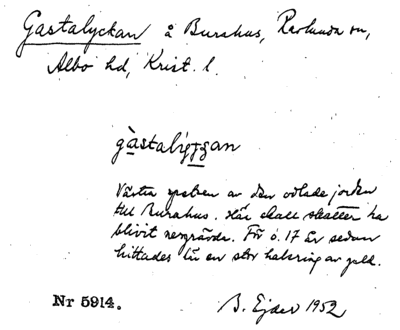 Gastalyckan å Burahus, Ravlunda sn,
Albo hd, Krist. l.
gàstalig̯gan
Västra spetsen av den odlade jorden
till Burahus. Här skall skatter ha
blivit nergrävda. För ö. 17 år sedan
hittades här en stor halsring av guld.
Nr 5914.
B. Ejder 1952